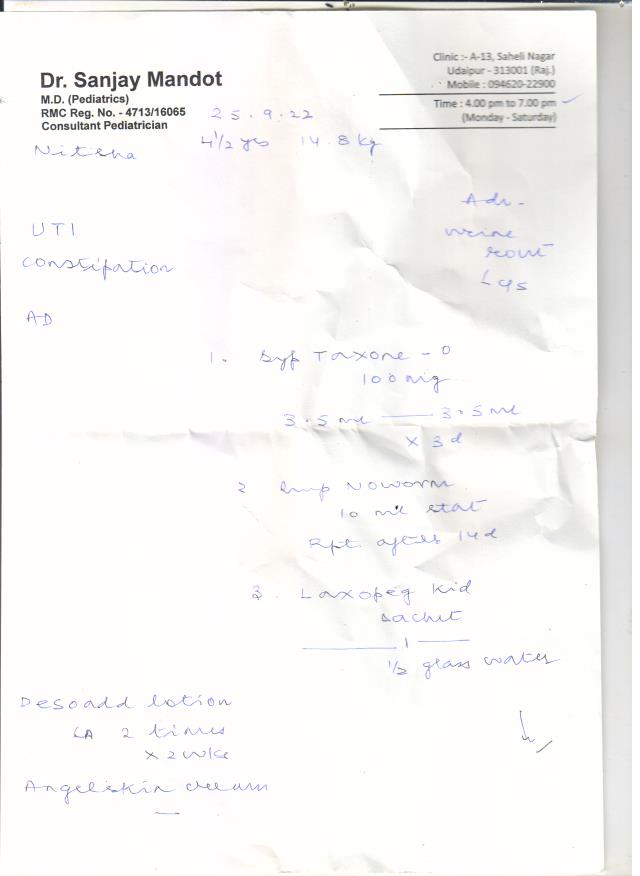 Dr. Sanjay Mandot
M.D. (Pediatrics)
RMC Reg. No. - 4713/16065
Consultant Pediatrician
Clinic :- A-13, Saheli Nagar
Udaipur - 313001 (Raj.)
Mobile : 094620-22900
Time : 4.00 pm to 7.00 pm
(Monday - Saturday)
25.9.22
4 1/2 yrs 14.8 kg
Adv -
urine
rout
UTI
constipation
AD
1. Syp Taxone - O
100 mg
3.5 ml — 3.5 ml
x 3d
2 Noworm
10 ml stat
Rpt. after 14d
3. Laxopeg Kid
sachet
— 1 —
1/2 glass water
Desoadd lotion
LA 2 times
x 2 wks
Angelskin cream